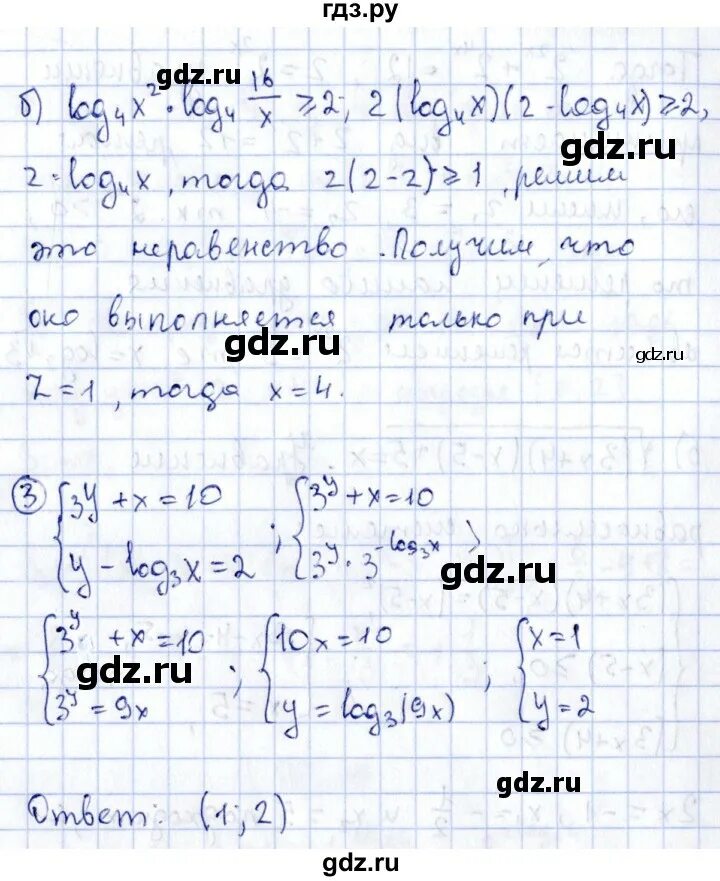 гдз.ру
б) log₄x² · log₄ 16/x ≥ 2; 2(log₄x)(2-log₄x) ≥ 2,
gdz.ru
gdz.ru
z = log₄x, тогда z(2-z) ≥ 1, решим
это неравенство. Получим, что
оно выполняется только при
gdz.ru
gdz.ru
z = 1, тогда x = 4.
③ {3^y + x = 10 ; {3^y + x = 10
{y - log₃x = 2 {3^y · 3^(-log₃x) ;
gdz.ru
{3^y + x = 10 ; {10x = 10 ; {x = 1
{3^y = 9x {y = log₃(9x) {y = 2
gdz.ru
gdz.ru
Ответ: (1; 2)
gdz.ru